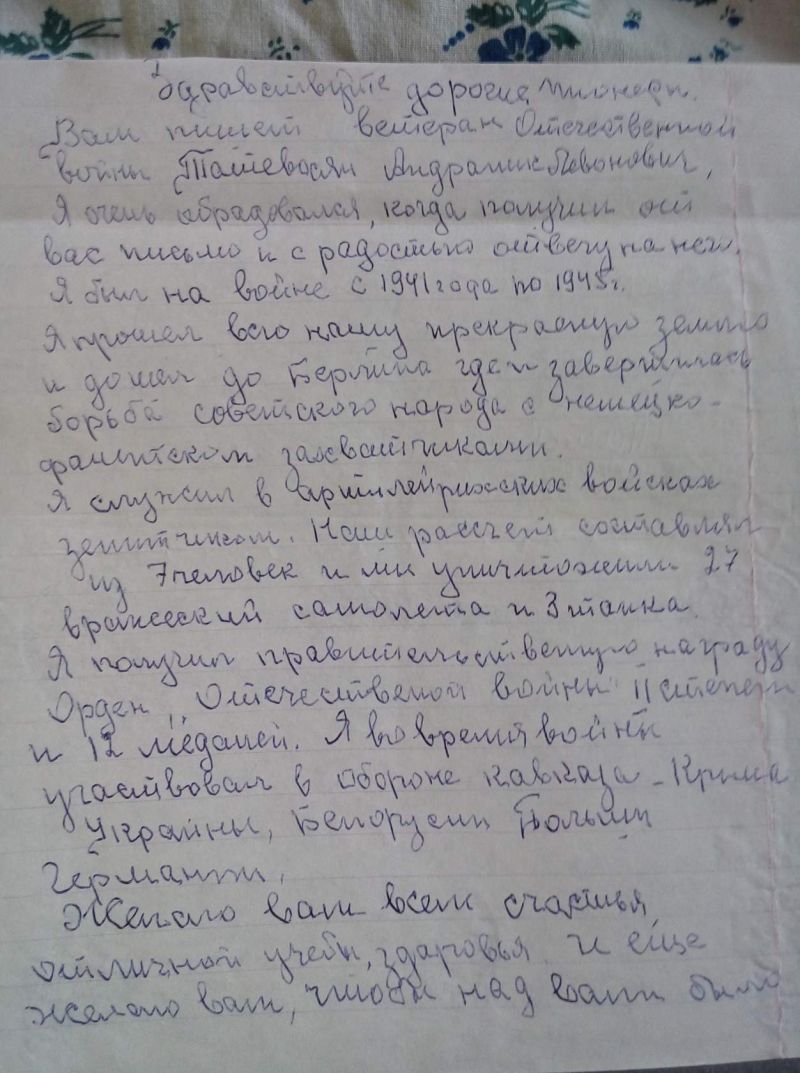 Здравствуйте дорогие пионеры.
Вам пишет ветеран Отечественной
войны Татевосян Андраник Левонович,
Я очень обрадовался, когда получил от
вас письмо и с радостью отвечу на него.
Я был на войне с 1941 года по 1945г.
Я прошел всю нашу прекрасную землю
и дошел до Берлина где и завершилась
борьба советского народа с немецко-
фашистском захватчиками.
Я служил в артиллейрийских войсках
зенитчиком. Наш рассчет составлял
из 7 человек и ми уничтожили 27
вражеский самолета и 3 танка.
Я получил правительственную награду
Орден „Отечественой войны II степени
и 12 медалей. Я во время войны
участвовал в обороне Кавказа - Крыма
Украины, Белорусии Польши
Германии.
Желаю вам всем счастья
отличной учебы, здаровья и еще
желаю вам, чтобы над вами было